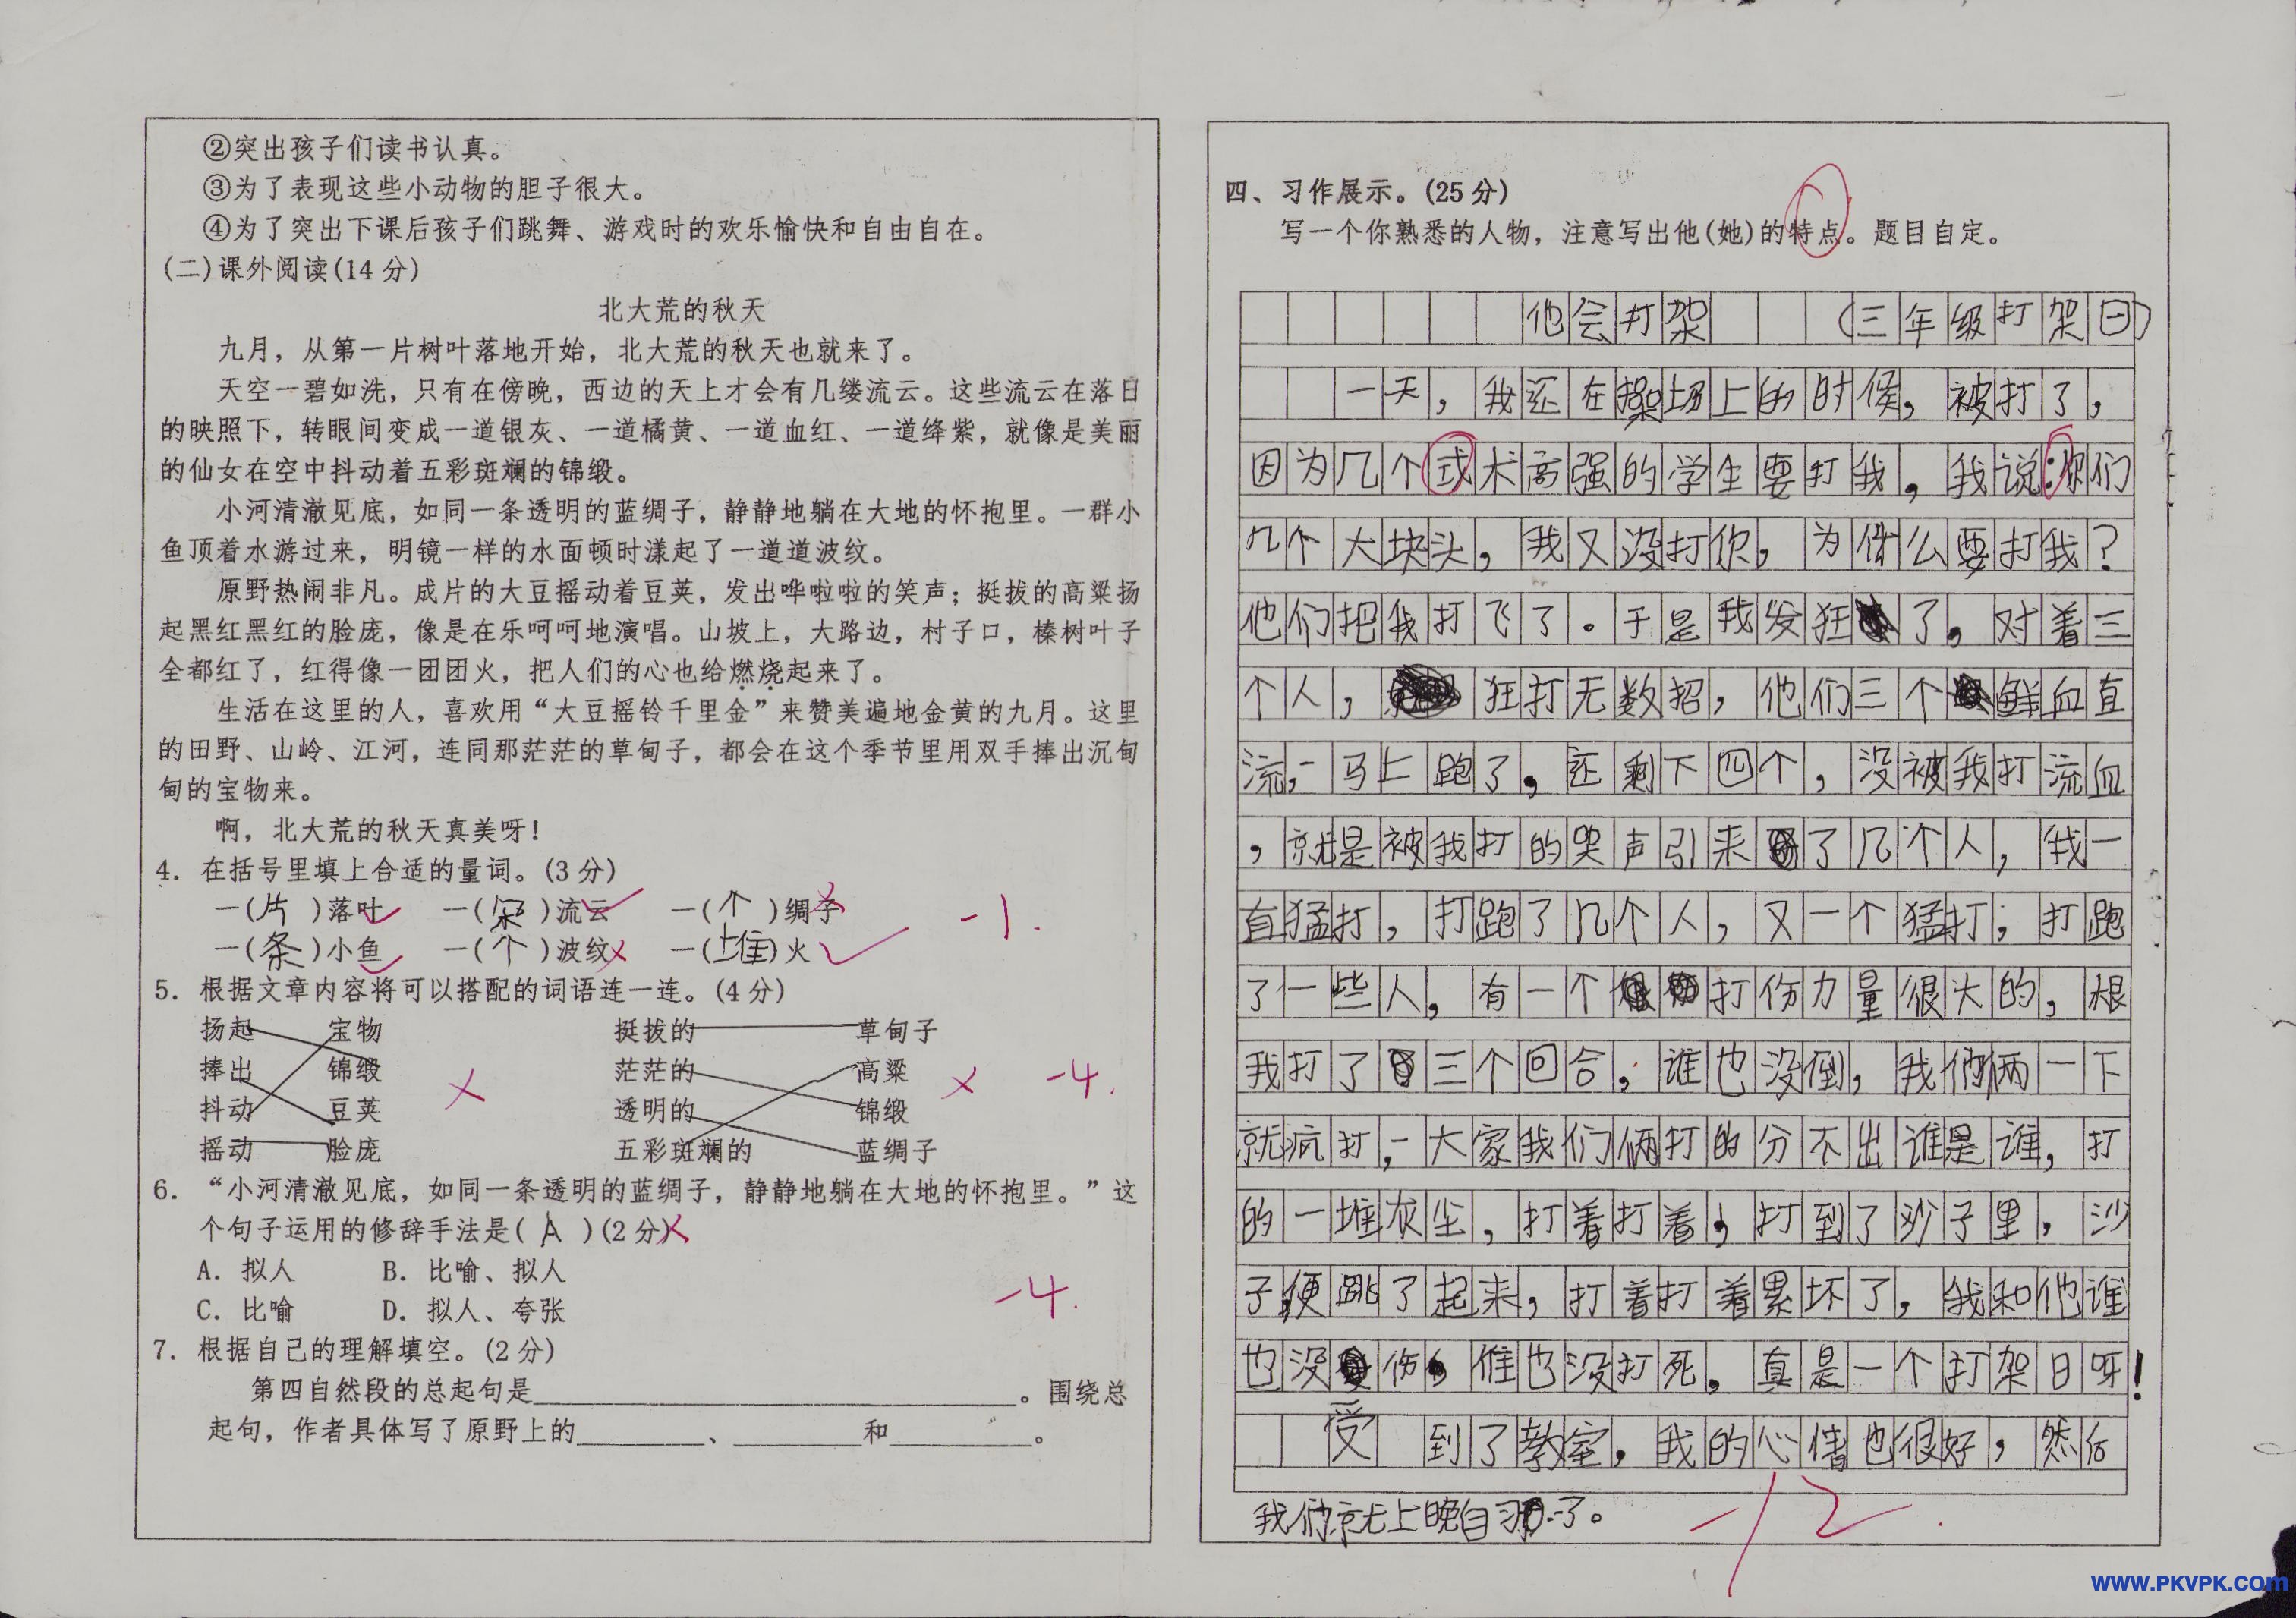 ②突出孩子们读书认真。
③为了表现这些小动物的胆子很大。
④为了突出下课后孩子们跳舞、游戏时的欢乐愉快和自由自在。
(二)课外阅读(14分)
北大荒的秋天
九月，从第一片树叶落地开始，北大荒的秋天也就来了。
天空一碧如洗，只有在傍晚，西边的天上才会有几缕流云。这些流云在落日
的映照下，转眼间变成一道银灰、一道橘黄、一道血红、一道绛紫，就像是美丽
的仙女在空中抖动着五彩斑斓的锦缎。
小河清澈见底，如同一条透明的蓝绸子，静静地躺在大地的怀抱里。一群小
鱼顶着水游过来，明镜一样的水面顿时漾起了一道道波纹。
原野热闹非凡。成片的大豆摇动着豆荚，发出哗啦啦的笑声；挺拔的高粱扬
起黑红黑红的脸庞，像是在乐呵呵地演唱。山坡上，大路边，村子口，榛树叶子
全都红了，红得像一团团火，把人们的心也给燃烧起来了。
生活在这里的人，喜欢用“大豆摇铃千里金”来赞美遍地金黄的九月。这里
的田野、山岭、江河，连同那茫茫的草甸子，都会在这个季节里用双手捧出沉甸
甸的宝物来。
啊，北大荒的秋天真美呀！
4. 在括号里填上合适的量词。(3分)
一(片)落叶 一(朵)流云 一(个)绸子
一(条)小鱼 一(个)波纹 一(堆)火
-1.
5. 根据文章内容将可以搭配的词语连一连。(4分)
扬起 宝物 挺拔的 草甸子
捧出 锦缎 茫茫的 高粱
抖动 豆荚 透明的 锦缎
摇动 脸庞 五彩斑斓的 蓝绸子
-4.
6. “小河清澈见底，如同一条透明的蓝绸子，静静地躺在大地的怀抱里。”这
个句子运用的修辞手法是(A)(2分)
A. 拟人 B. 比喻、拟人
C. 比喻 D. 拟人、夸张
-4.
7. 根据自己的理解填空。(2分)
第四自然段的总起句是________。围绕总
起句，作者具体写了原野上的________、________和________。
四、习作展示。(25分)
写一个你熟悉的人物，注意写出他(她)的特点。题目自定。
他会打架 (三年级打架日)
一天，我还在操场上的时候，被打了，
因为几个武术高强的学生要打我，我说:你们
几个大块头，我又没打你，为什么要打我？
他们把我打飞了。于是我发狂了，对着三
个人，狂打无数招，他们三个鲜血直
流，一马上跑了，还剩下四个，没被我打流血
，就是被我打的哭声引来了几个人，我一
直猛打，打跑了几个人，又一个猛打，打跑
了一些人，有一个打伤力量很大的，根
我打了三个回合，谁也没倒，我们俩一下
就疯打，一大家我们俩打的分不出谁是谁，打
的一堆灰尘，打着打着，打到了沙子里，沙
子便跳了起来，打着打着累坏了，我和他谁
也没受伤，谁也没打死，真是一个打架日呀！
到了教室，我的心情也很好，然后
我们就上晚自习了。
-12.
www.PKVPK.com